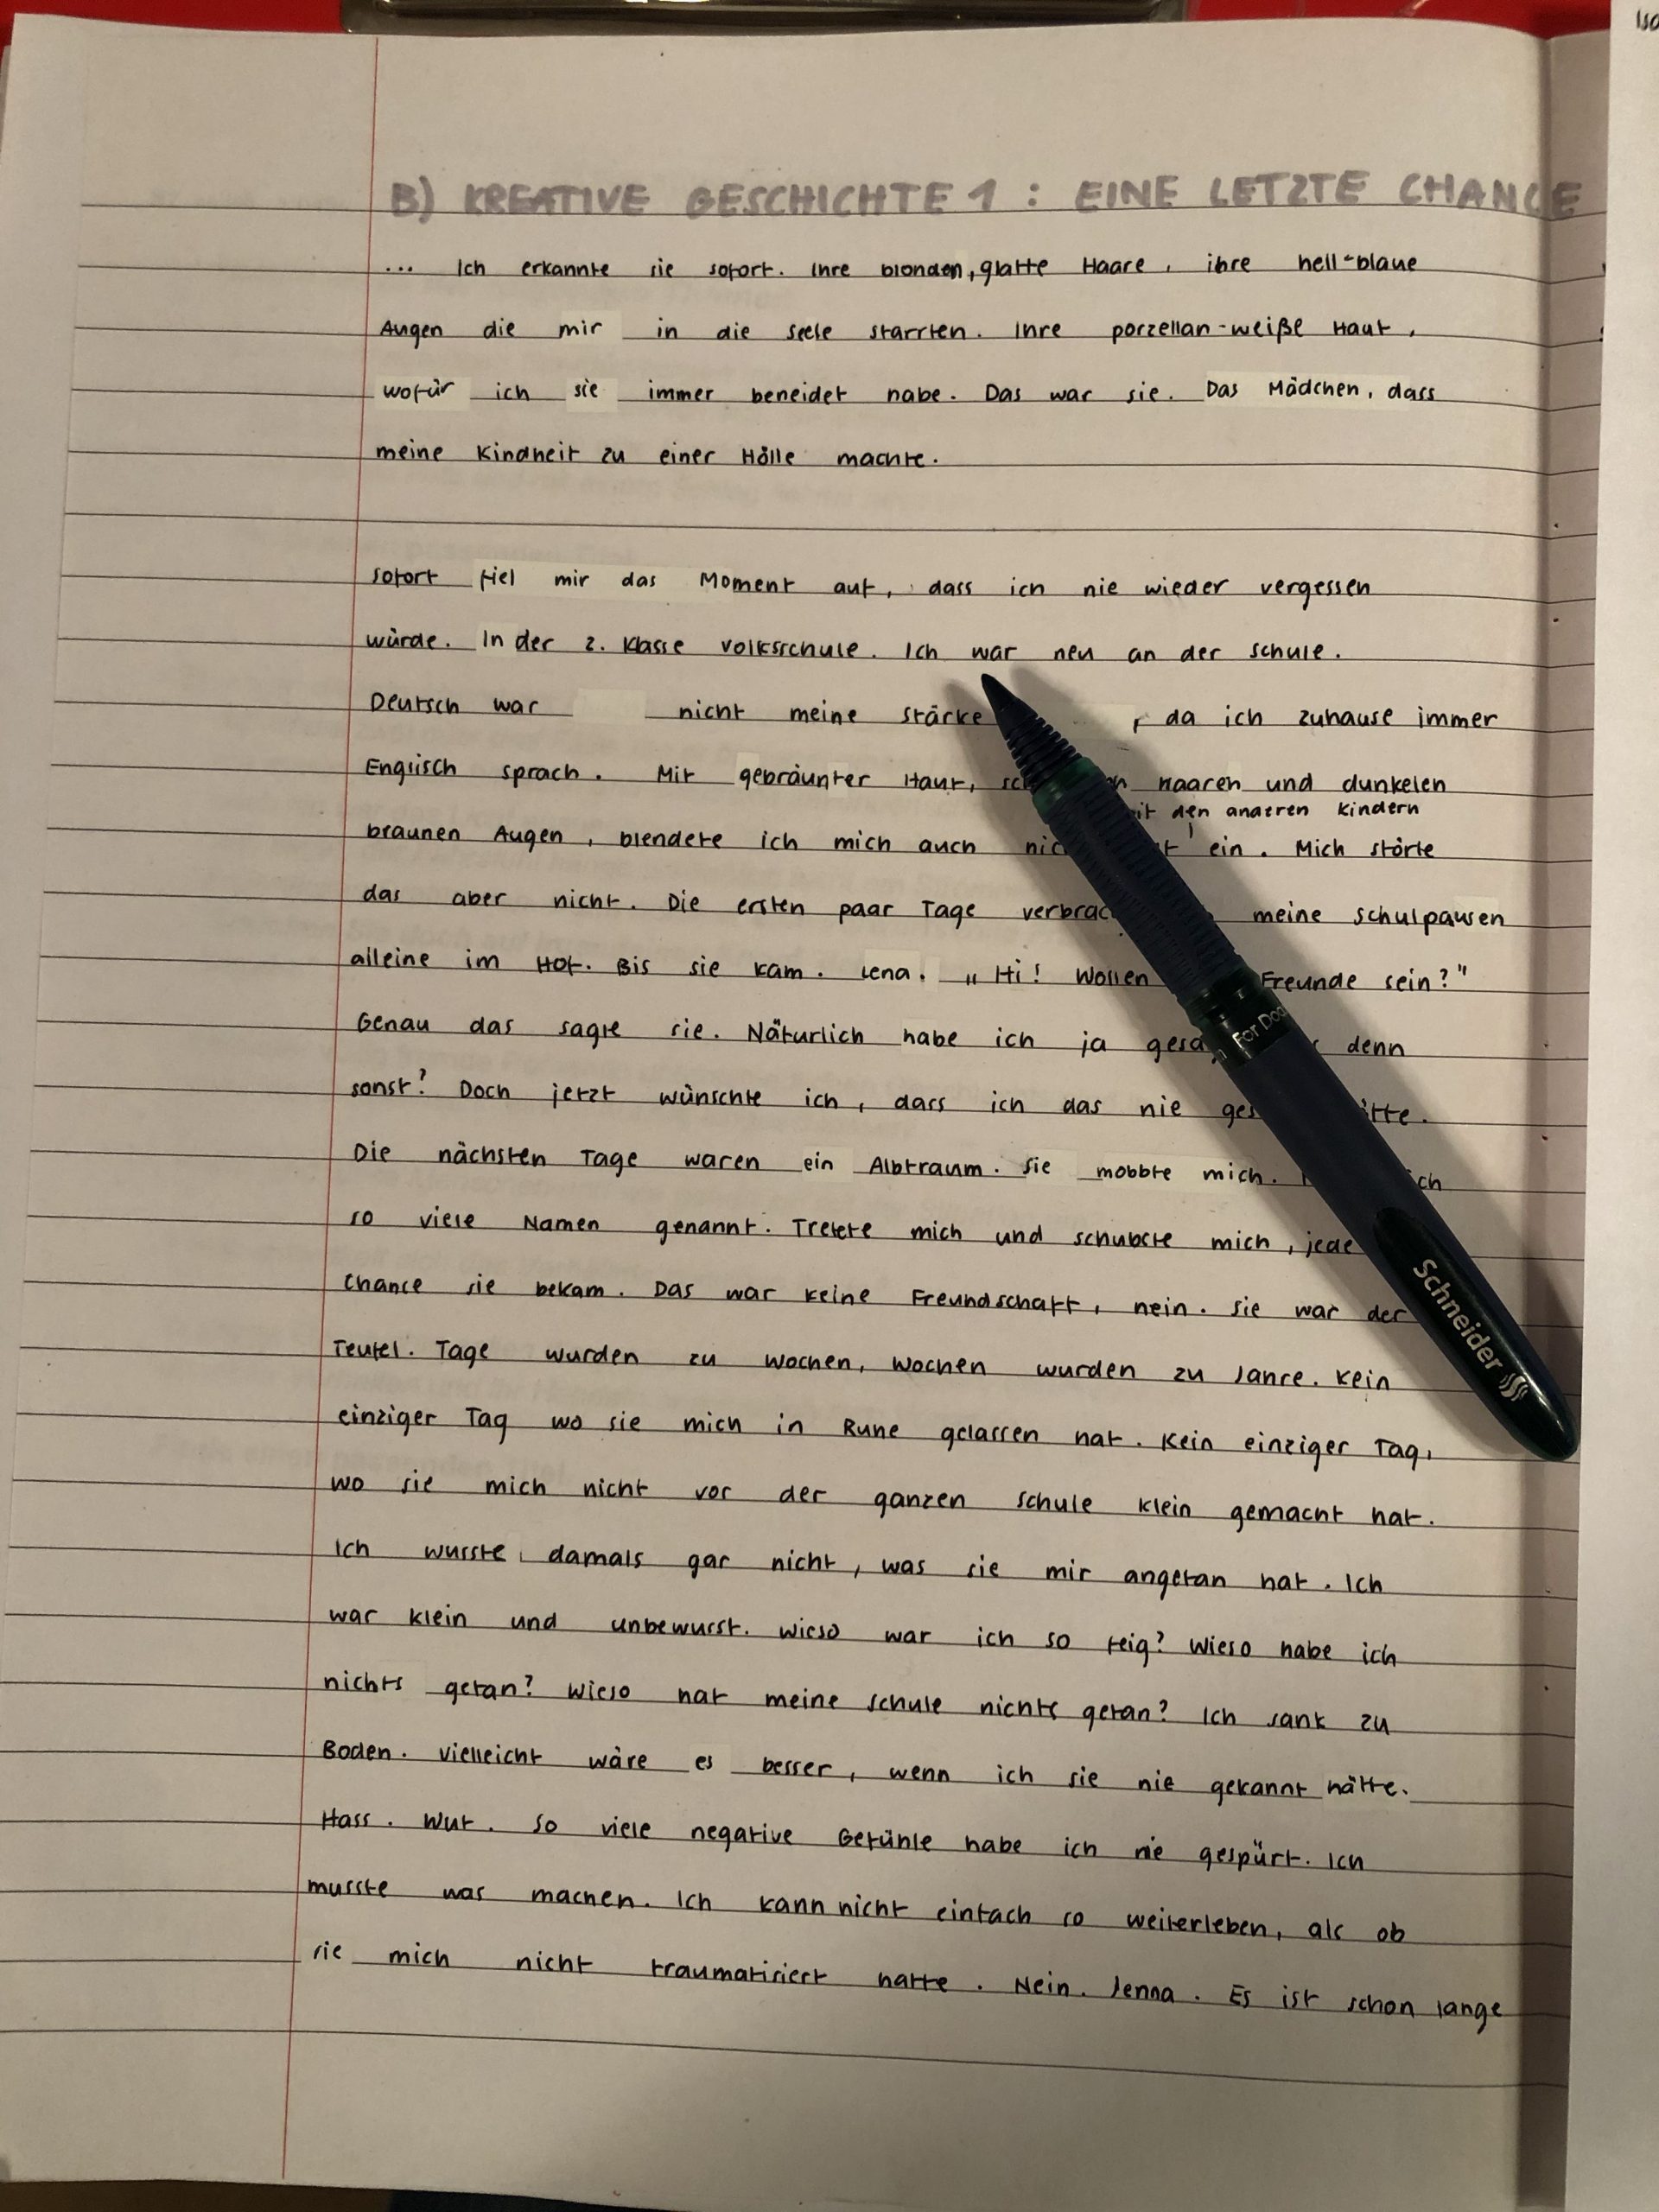 B) KREATIVE GESCHICHTE 1 : EINE LETZTE CHANCE
... Ich erkannte sie sofort. Ihre blonden, glatte Haare, ihre hell-blaue
Augen die mir in die Seele starrten. Ihre porzellan-weiße Haut,
wofür ich sie immer beneidet habe. Das war sie. Das Mädchen, dass
meine Kindheit zu einer Hölle machte.
Sofort fiel mir das Moment auf, dass ich nie wieder vergessen
würde. In der 2. Klasse Volksschule. Ich war neu an der Schule.
Deutsch war nicht meine Stärke, da ich zuhause immer
Englisch sprach. Mit gebräunter Haut, Haaren und dunkelen
den anderen Kindern
braunen Augen, blendete ich mich auch ein. Mich störte
das aber nicht. Die ersten paar Tage meine Schulpausen
alleine im Hof. Bis sie kam. Lena. „Hi! Wollen Freunde sein?"
Genau das sagte sie. Näturlich habe ich ja denn
sonst? Doch jetzt wünschte ich, dass ich das nie
Die nächsten Tage waren ein Albtraum. Sie mobbte mich.
so viele Namen genannt. Tretete mich und schubste mich, jede
Chance sie bekam. Das war keine Freundschaft, nein. Sie war der
Teufel. Tage wurden zu Wochen, Wochen wurden zu Jahre. Kein
einziger Tag wo sie mich in Ruhe gelassen hat. Kein einziger Tag,
wo sie mich nicht vor der ganzen Schule klein gemacht hat.
Ich wusste damals gar nicht, was sie mir angetan hat. Ich
war klein und unbewusst. Wieso war ich so feig? Wieso habe ich
nichts getan? Wieso hat meine Schule nichts getan? Ich sank zu
Boden. Vielleicht wäre es besser, wenn ich sie nie gekannt hätte.
Hass. Wut. So viele negative Gefühle habe ich nie gespürt. Ich
musste was machen. Ich kann nicht einfach so weiterleben, als ob
sie mich nicht traumatisiert hatte. Nein. Jenna. Es ist schon lange
For Doc
Schneider